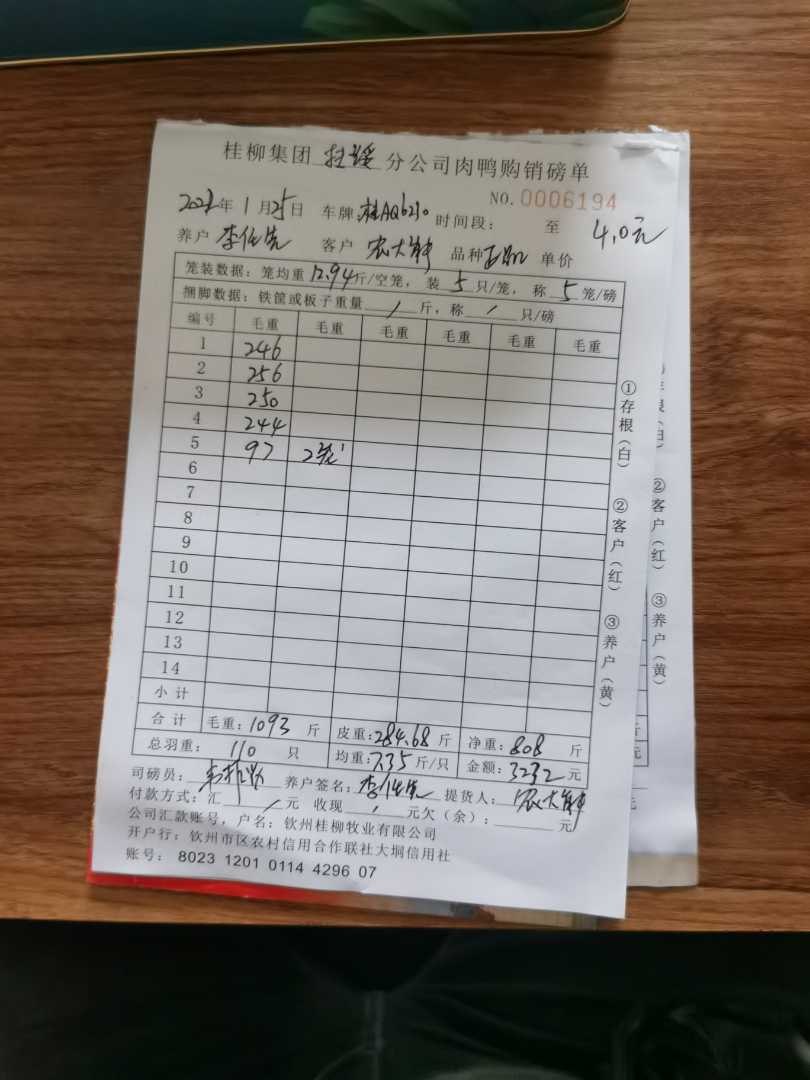 桂柳集团 分公司肉鸭购销磅单
NO.0006194
2022年1月25日 车牌:桂AQ6210 时间段: 至 4.0元
养户 李任先 客户 农大 品种 单价
笼装数据：笼均重12.94斤/空笼，装5只/笼，称5笼/磅
捆脚数据：铁筐或板子重量/斤，称/只/磅
编号 毛重 毛重 毛重 毛重 毛重 毛重
1 246
2 256
3 250
4 244
5 97 2笼
6
7
8
9
10
11
12
13
14
小计
合计 毛重：1093斤 皮重：284.68斤 净重：808斤
总羽重：110只 均重：7.35斤/只 金额：3232元
司磅员： 养户签名：李任先 提货人：农大
付款方式：汇/元 收现/元欠（余）： 元
公司汇款账号，户名：钦州桂柳牧业有限公司
开户行：钦州市区农村信用合作联社大垌信用社
账号：8023 1201 0114 4296 07
①存根（白） ②客户（红） ③养户（黄）
②客户（红） ③养户（黄）
斤
元